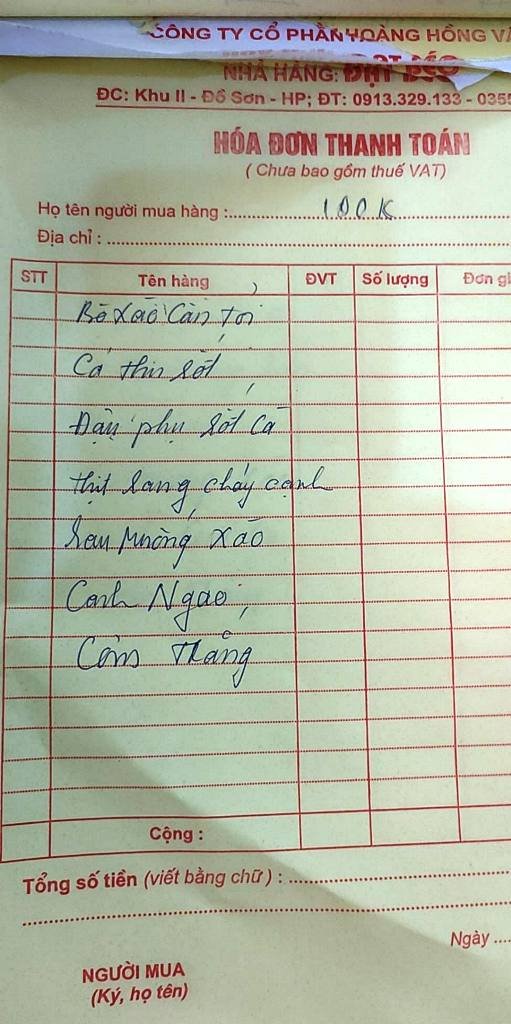 CÔNG TY CỔ PHẦN HOÀNG HỒNG
NHÀ HÀNG: ĐẠT BÉO
ĐC: Khu II - Đồ Sơn - HP; ĐT: 0913.329.133 - 0355
HÓA ĐƠN THANH TOÁN
( Chưa bao gồm thuế VAT)
Họ tên người mua hàng : 100K
Địa chỉ :
STT Tên hàng ĐVT Số lượng Đơn gi
Bò xào Cần Tỏi
Cá thu sốt
Đậu phụ sốt Cà
thịt rang cháy cạnh
Rau Muống Xào
Canh Ngao
Cơm Trắng
Cộng :
Tổng số tiền (viết bằng chữ) :
Ngày
NGƯỜI MUA
(Ký, họ tên)